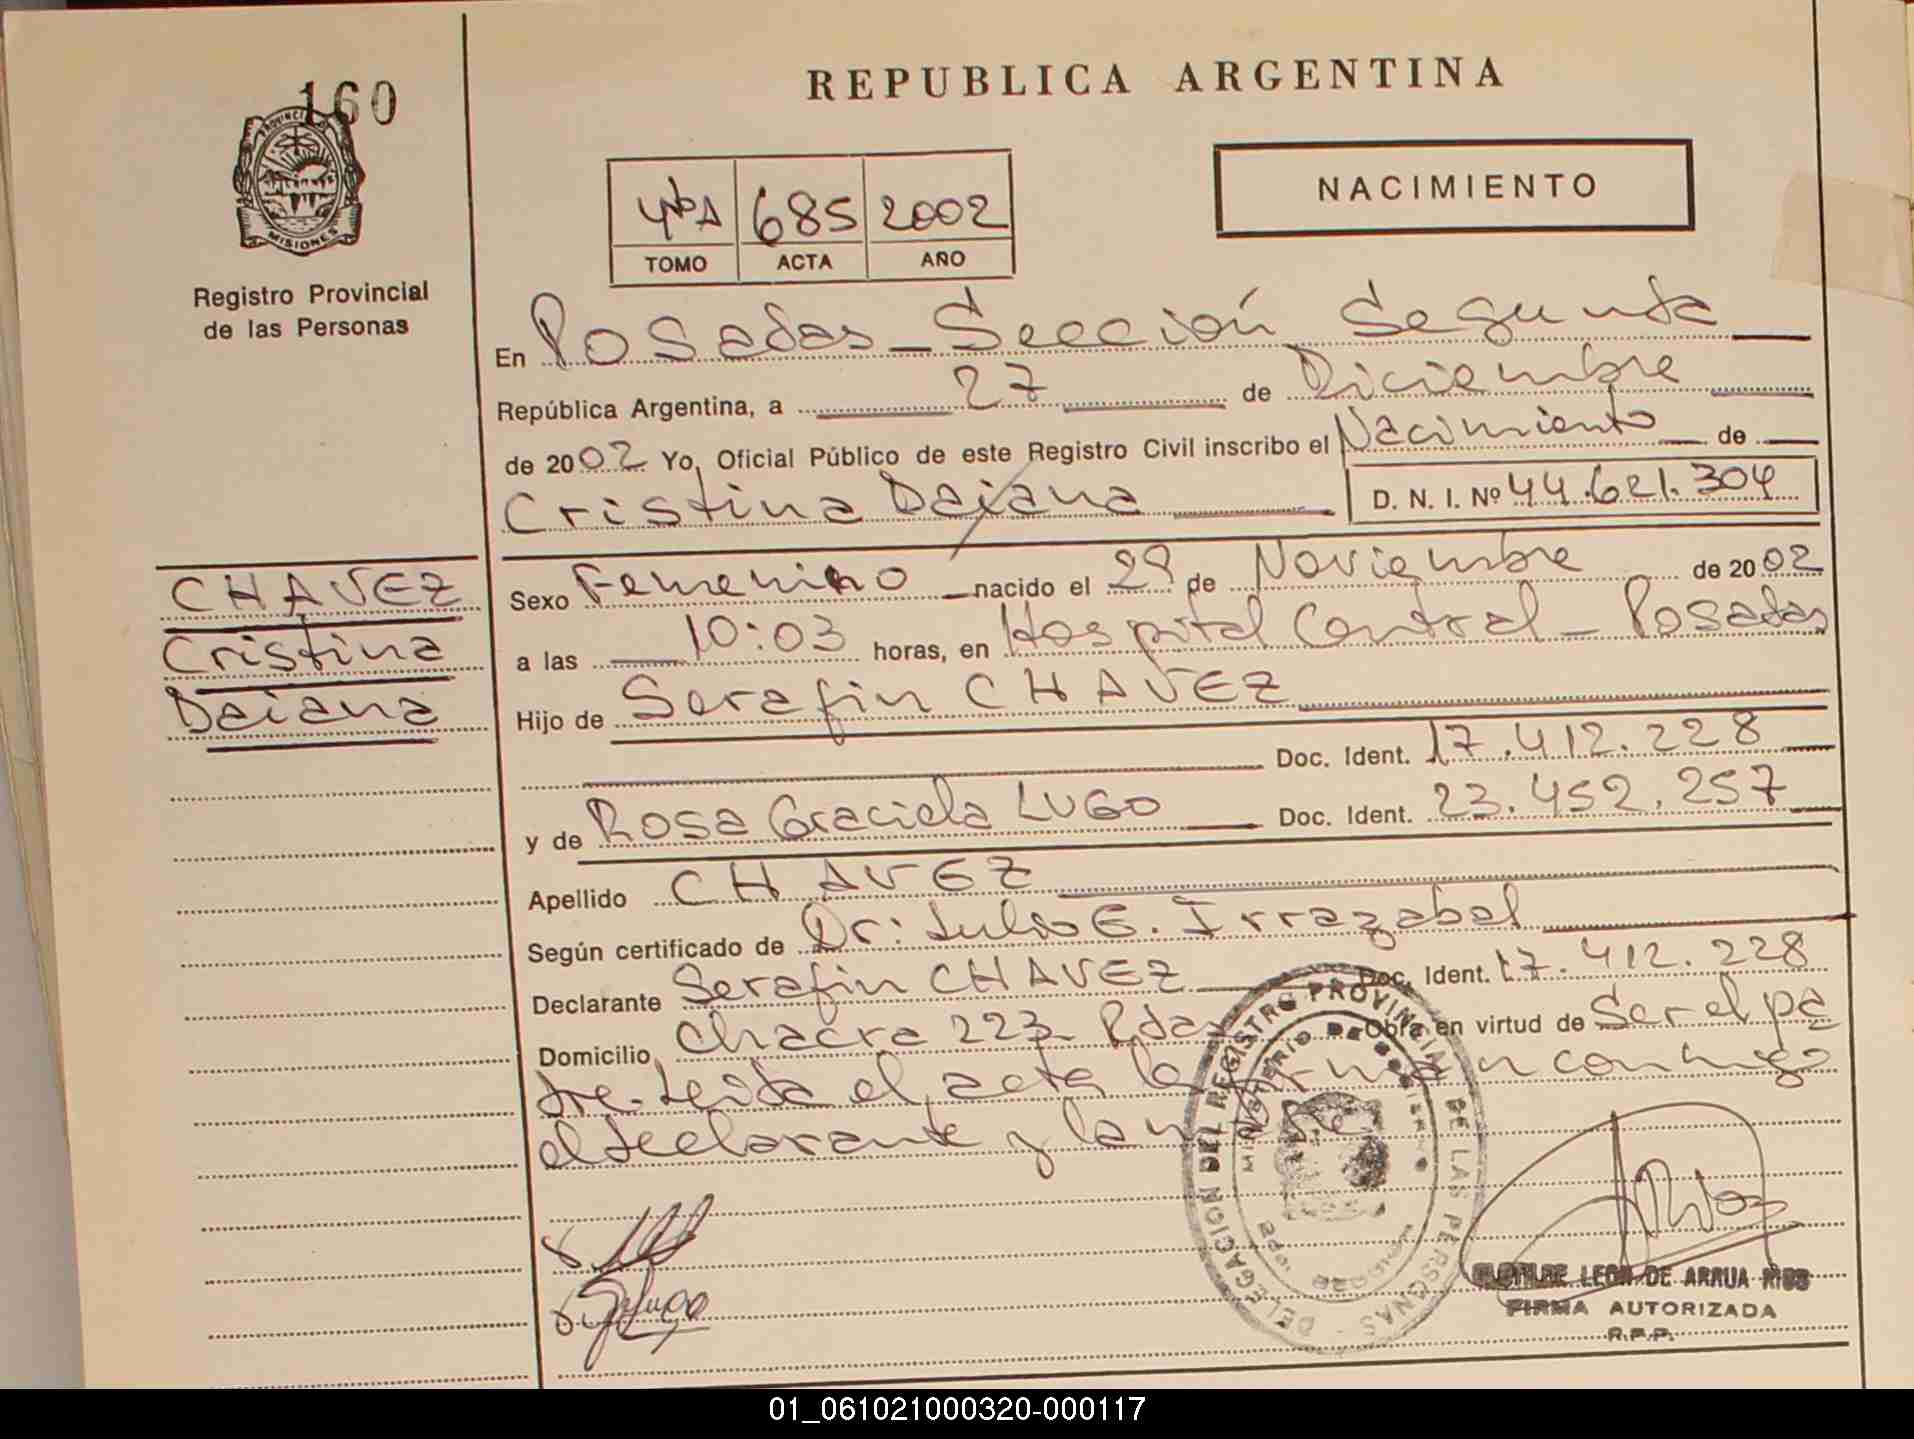 160
PROVINCIA DE
MISIONES
Registro Provincial
de las Personas
REPUBLICA ARGENTINA
NACIMIENTO
4to A 685 2002
TOMO ACTA AÑO
En Posadas - Sección Segunda
República Argentina, a 27 de Diciembre
de 2002 Yo, Oficial Público de este Registro Civil inscribo el Nacimiento de
Cristina Daiana D. N. I. Nº 44.621.304
CHAVEZ
Cristina
Daiana
Sexo Femenino nacido el 29 de Noviembre de 2002
a las 10:03 horas, en Hospital Central - Posadas
Hijo de Serafin CHAVEZ
Doc. Ident. 17.412.228
y de Rosa Graciela LUGO Doc. Ident. 23.452.257
Apellido CHAVEZ
Según certificado de Dr: Julio E. Irrazabal
Declarante Serafin CHAVEZ Doc. Ident. 17.412.228
Domicilio Chacra 223 - Pdas Obra en virtud de Ser el pa
dre - Leida el acta la firman conmigo
el declarante y la madre
DELEGACION DEL REGISTRO PROVINCIAL DE LAS PERSONAS
MINISTERIO DE GOBIERNO
LEON DE ARRUA RIOS
FIRMA AUTORIZADA
R.P.P.
01_061021000320-000117